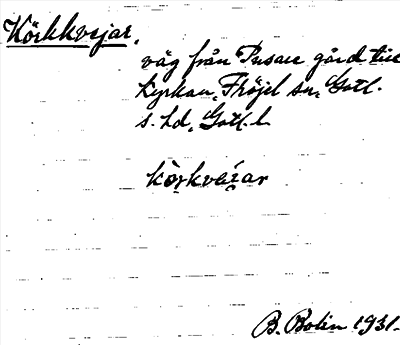 Körkkvejar,
väg från Pusarve gård till
kyrkan, Fröjel sn, Gotl.
s. hd, Gotl. l.
körkvei̯ar
B. Bolin 1931.